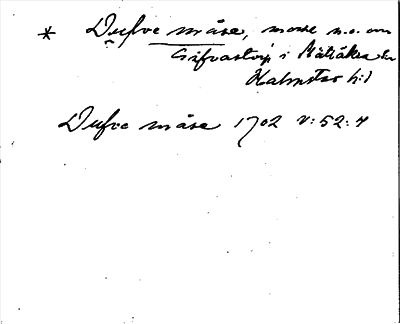 * Dufve måse, mosse n.o. om
Gifvastorp i Slättåkra sn
Halmstad h:d
Dufve måse 1702 N:52:4